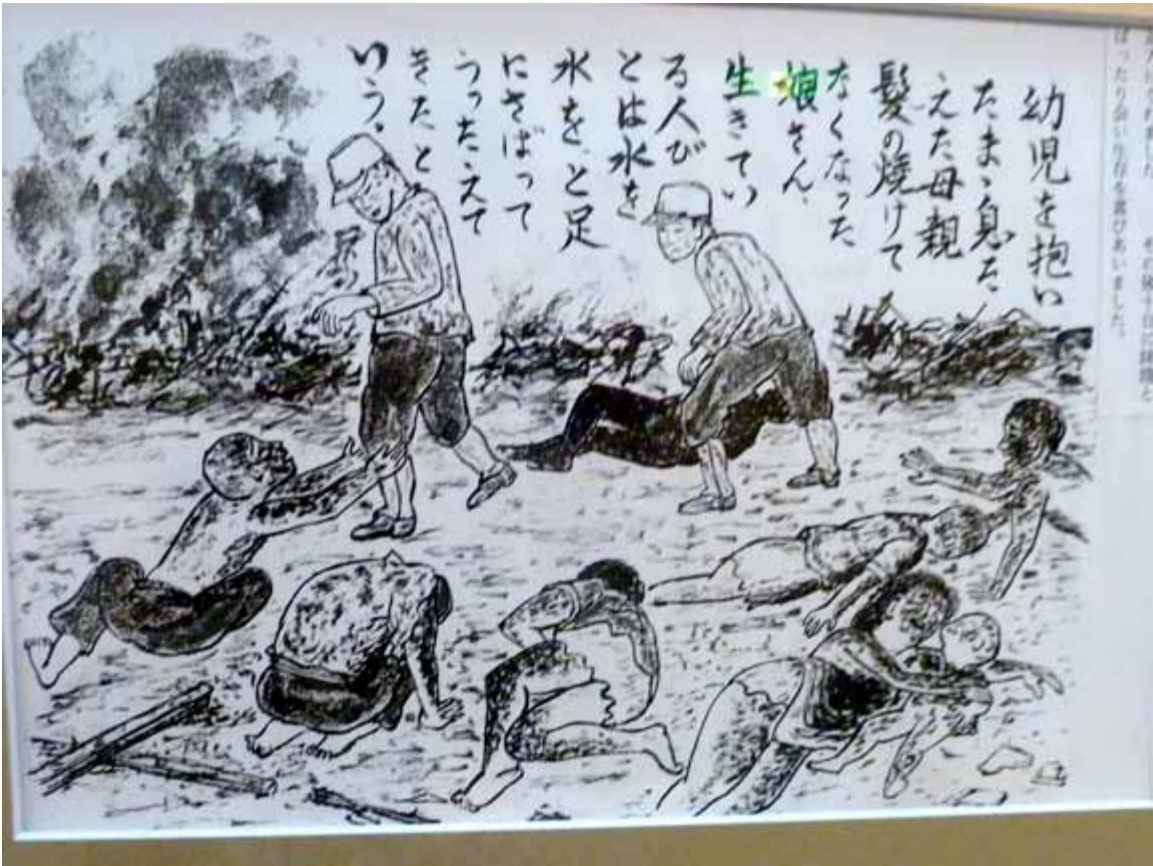 幼児を抱い
たまゝ息たへ
えた母親
髪の焼けて
なくなった
娘さん、
生きてい
る人び
とは水を
水を、と足
にさばって
うったえて
きたと
いう。
ばったり会い生存を喜びあいました。